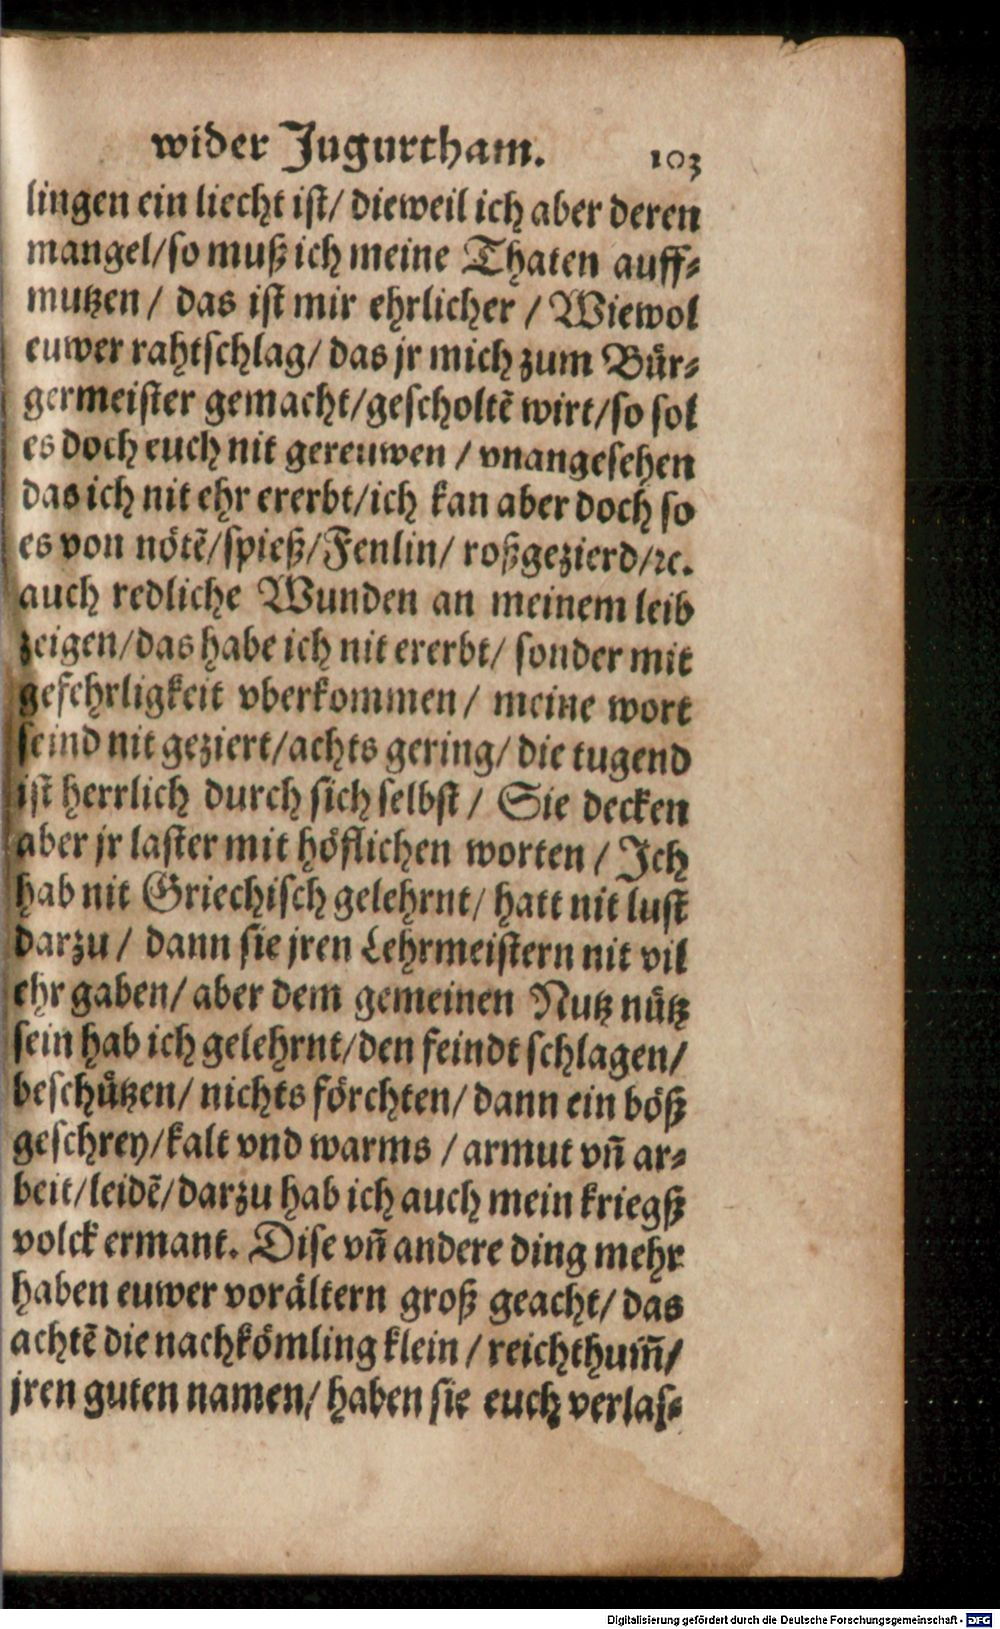 wider Jugurtham. 103
lingen ein liecht ist/ dieweil ich aber deren
mangel/so muß ich meine Thaten auff⸗
mutzen / das ist mir ehrlicher / Wiewol
euwer rahtschlag/ das jr mich zum Bür⸗
germeister gemacht/gescholtẽ wirt/so sol
es doch euch nit gereuwen / vnangesehen
das ich nit ehr ererbt/ich kan aber doch so
es von nötẽ/spieß/Fenlin/ roßgezierd/ꝛc.
auch redliche Wunden an meinem leib
zeigen/das habe ich nit ererbt/ sonder mit
gefehrligkeit vberkommen / meine wort
seind nit geziert/achts gering/ die tugend
ist herrlich durch sich selbst / Sie decken
aber jr laster mit höflichen worten / Ich
hab nit Griechisch gelehrnt/ hatt nit lust
darzu / dann sie jren Lehrmeistern nit vil
ehr gaben/ aber dem gemeinen Nutz nütz
sein hab ich gelehrnt/den feindt schlagen/
beschützen/ nichts förchten/ dann ein böß
geschrey/kalt vnd warms / armut vñ ar⸗
beit/leidẽ/darzu hab ich auch mein kriegß
volck ermant. Dise vñ andere ding mehr
haben euwer vorältern groß geacht/ das
achtẽ die nachkömling klein / reichthum̃/
jren guten namen/ haben sie euch verlas⸗
Digitalisierung gefördert durch die Deutsche Forschungsgemeinschaft - DFG